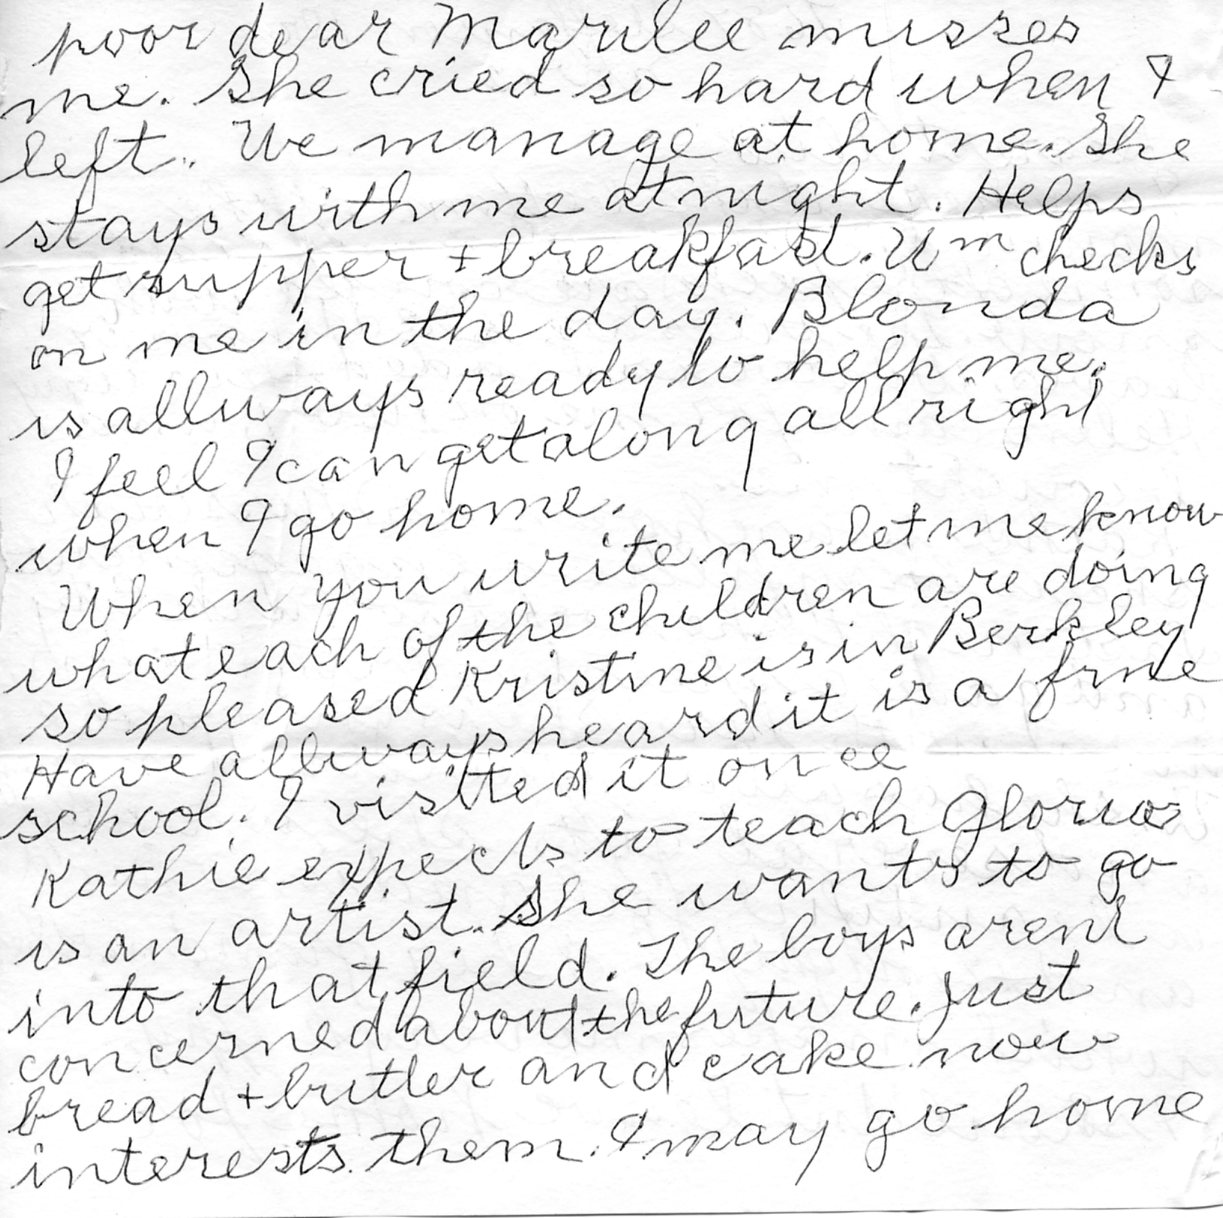 poor dear Marilee misses
me. She cried so hard when I
left. We manage at home. She
stays with me at night. Helps
get supper + breakfast. Wm checks
on me in the day. Blonda
is allways ready to help me.
I feel I can get along all right
when I go home.
When you write me let me know
what each of the children are doing
so pleased Kristine is in Berkley
Have allways heard it is a fine
school. I visited it once
Kathie expects to teach Gloria
is an artist. She wants to go
into that field. The boys arent
concerned about the future. Just
bread + butter and cake now
interests them. I may go home